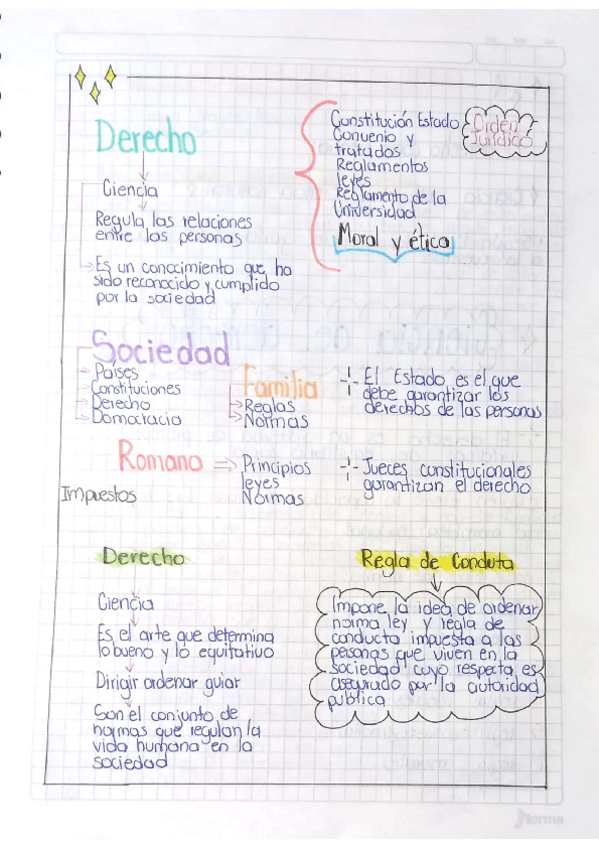 Derecho
Ciencia
Regula las relaciones
entre las personas
Es un conocimiento que ha
sido reconocido y cumplido
por la sociedad
Constitución Estado
Convenio y
tratados
Reglamentos
leyes
Reglamento de la
Universidad
Moral y ética
Orden
Jurídico
Sociedad
Países
Constituciones
Derecho
Familia
Reglas
Normas
El Estado es el que
debe garantizar los
derechos de las personas
Romano
Principios
leyes
Normas
Jueces constitucionales
garantizan el derecho
Impuestos
Derecho
Ciencia
Es el arte que determina
lo bueno y lo equitativo
Dirigir ordenar guiar
Son el conjunto de
normas que regulan la
vida humana en la
sociedad
Regla de Conduta
Impone la idea de ordenar
norma ley y regla de
conducta impuesta a las
personas que viven en la
sociedad cuyo respecta es
asegurado por la autoridad
publica
Norma